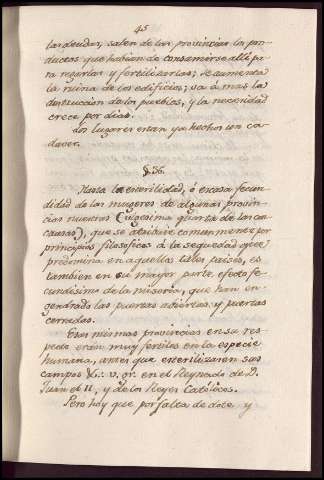 45
las deudas, salen de las provincias los pro-
ductos que habian de consumirse alli pa-
ra regarlas y fertilizarlas; se aumenta
la ruina de los edificios; va á mas la
destruccion de los pueblos, y la necesidad
crece por dias.
Los lugares estan ya hechos un ca-
daver.
§. 56.
Hasta la esterilidad, ó escasa fecun-
didad de las mugeres de algunas provin-
cias nuestras (Vigesima quarta de las ca-
causas), que se atribuie comunmente por
principios filosoficos á la sequedad que
predomina en aquellos tales paises, es
tambien en su mayor parte efecto fe-
cundisimo de la miseria, que han en-
gendrado las puertas abiertas y puertas
cerradas.
Esas mismas provincias en su res-
pecto eran muy fertiles en la especie
humana, antes que esterilizasen sus
campos &.: v. gr. en el Reynado de D.
Juan el II, y de los Reyes Catolicos.
Pero hay que por falta de dote, y